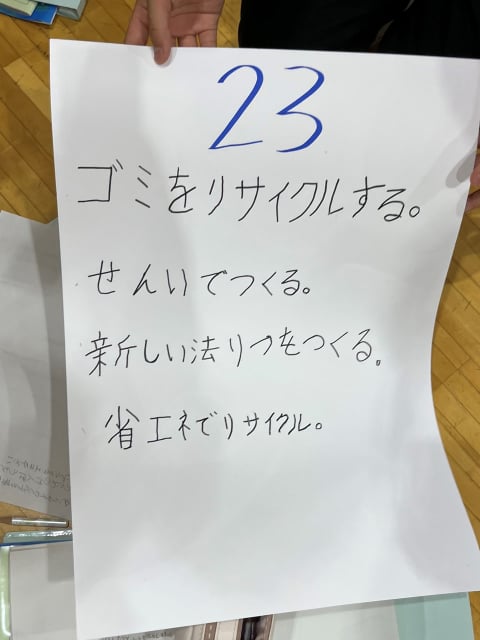 23
ゴミをリサイクルする。
せんいでつくる。
新しい法りつをつくる。
省エネでリサイクル。